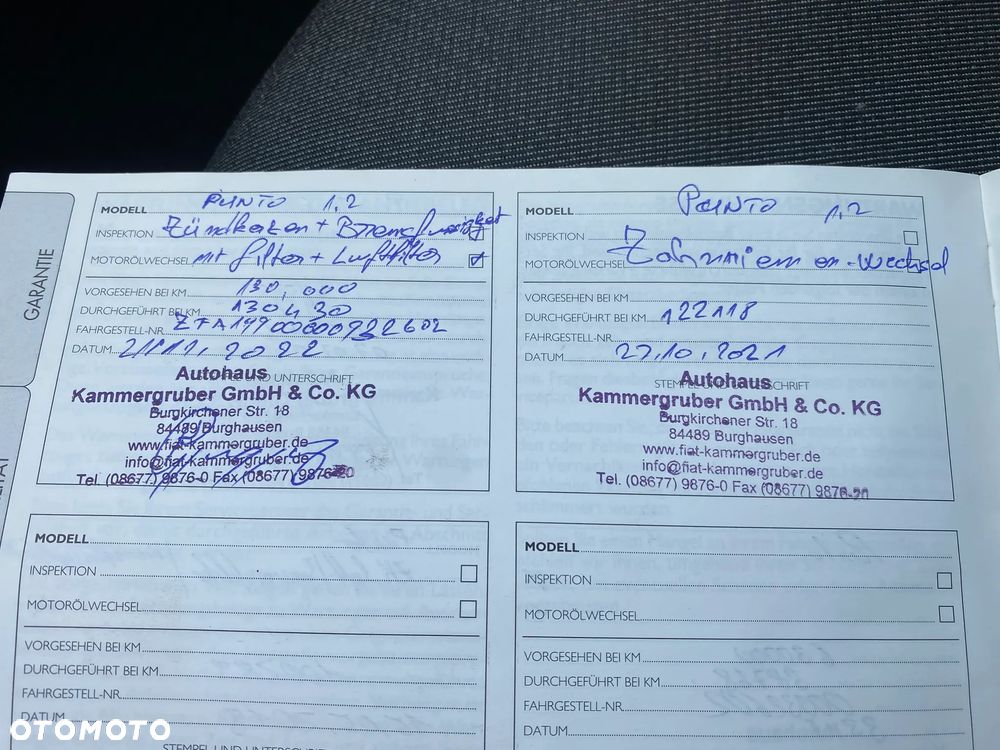 GARANTIE
MODELL PUNTO 1,2
INSPEKTION Zündkerzen + Bremsflüssigkeit
MOTORÖLWECHSEL mit filter + Luftfilter
VORGESEHEN BEI KM 130,000
DURCHGEFÜHRT BEI KM 130430
FAHRGESTELL-NR.
DATUM 2022
STEMPEL UND UNTERSCHRIFT
Autohaus
Kammergruber GmbH & Co. KG
Burgkirchener Str. 18
84489 Burghausen
www.fiat-kammergruber.de
info@fiat-kammergruber.de
Tel. (08677) 9876-0 Fax (08677) 9876-20
MODELL PUNTO 1,2
INSPEKTION
MOTORÖLWECHSEL Zahnriemen-Wechsel
VORGESEHEN BEI KM
DURCHGEFÜHRT BEI KM 122118
FAHRGESTELL-NR.
DATUM 27,10,2021
STEMPEL UND UNTERSCHRIFT
Autohaus
Kammergruber GmbH & Co. KG
Burgkirchener Str. 18
84489 Burghausen
www.fiat-kammergruber.de
info@fiat-kammergruber.de
Tel. (08677) 9876-0 Fax (08677) 9876-20
MODELL
INSPEKTION
MOTORÖLWECHSEL
VORGESEHEN BEI KM
DURCHGEFÜHRT BEI KM
FAHRGESTELL-NR.
DATUM
STEMPEL UND UNTERSCHRIFT
MODELL
INSPEKTION
MOTORÖLWECHSEL
VORGESEHEN BEI KM
DURCHGEFÜHRT BEI KM
FAHRGESTELL-NR.
DATUM
OTOMOTO